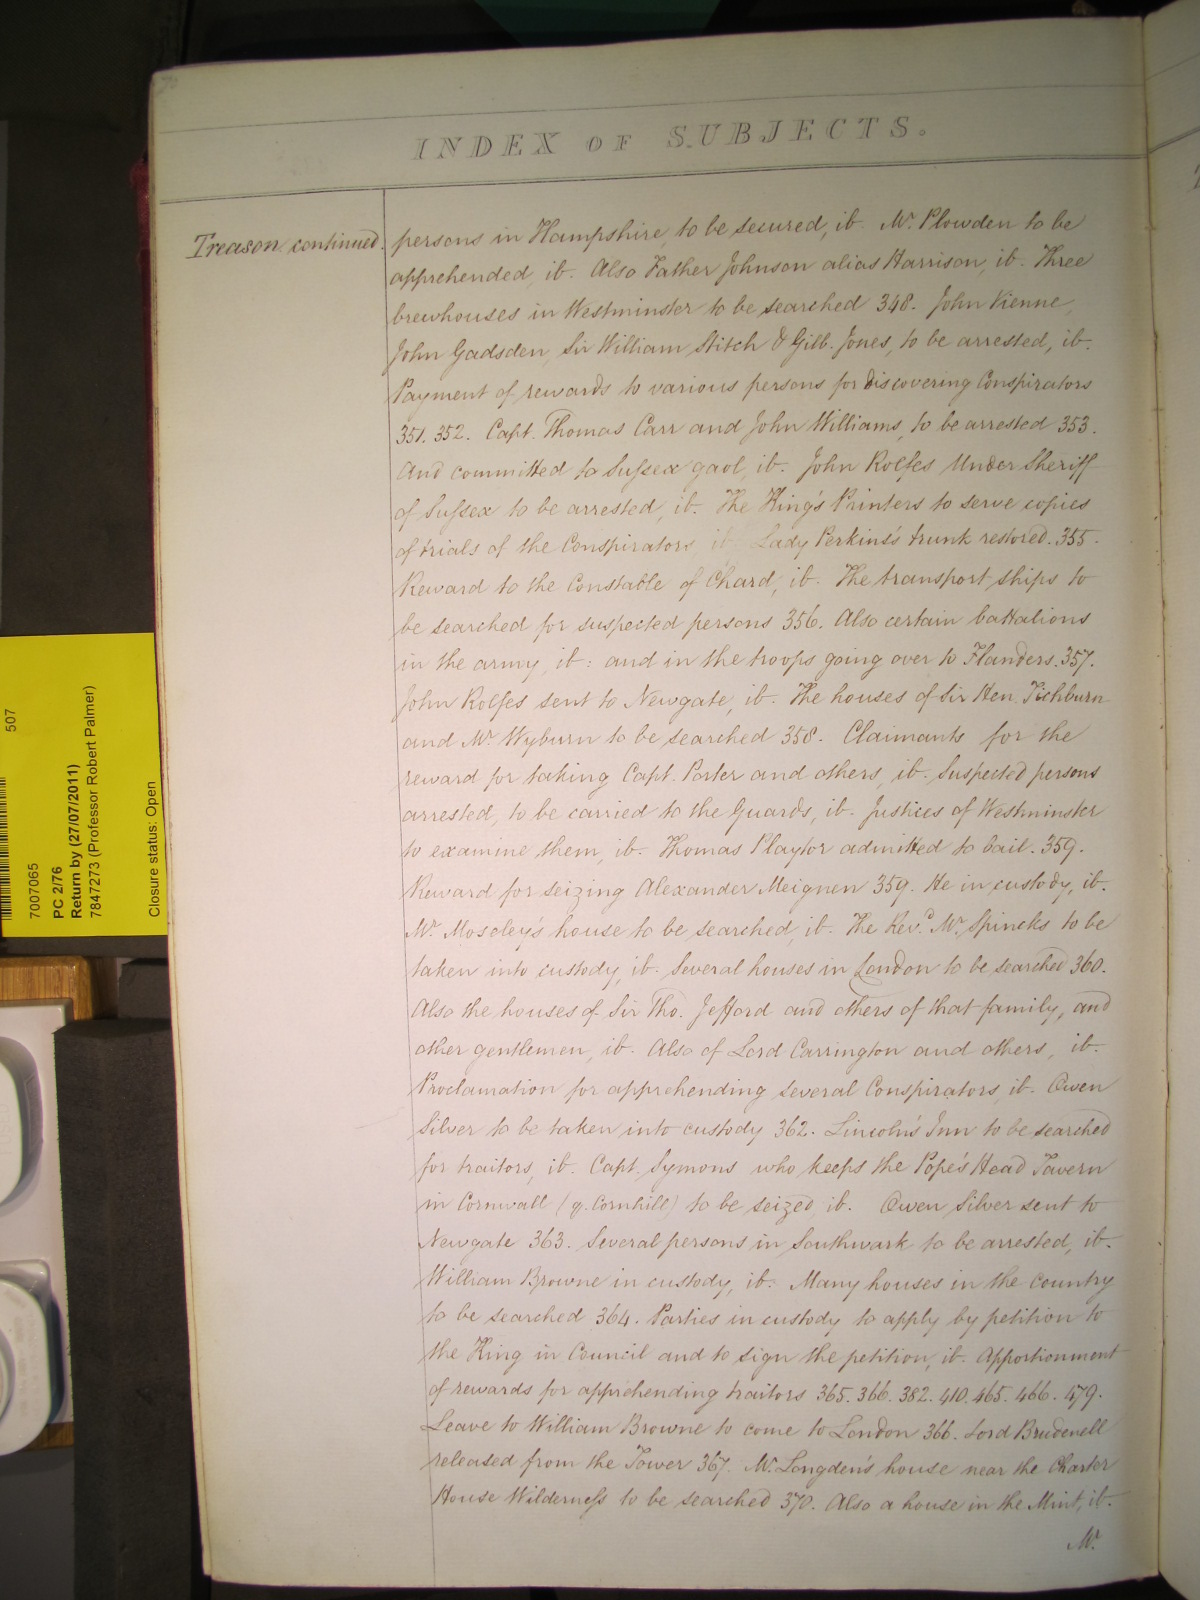 INDEX OF SUBJECTS.
Treason continued.
persons in Hampshire, to be secured, ib. Mr. Plowden to be
apprehended, ib. Also Father Johnson alias Harrison, ib. Three
brewhouses in Westminster to be searched 348. John Vienne,
John Gadsden, Sir William Stitch & Gilb. Jones, to be arrested, ib.
Payment of rewards to various persons for discovering Conspirators
351. 352. Capt. Thomas Carr and John Williams, to be arrested 353.
And committed to Sussex gaol, ib. John Rolfes Under Sheriff
of Sussex to be arrested, ib. The King's Printers to serve copies
of trials of the Conspirators ib. Lady Perkins's trunk restored. 355.
Reward to the Constable of Chard, ib. The transport ships to
be searched for suspected persons 356. Also certain battalions
in the army, ib: and in the troops going over to Flanders. 357.
John Rolfes sent to Newgate, ib. The houses of Sir Hen. Tichburn
and Mr. Wyburn to be searched 358. Claimants for the
reward for taking Capt. Porter and others, ib. Suspected persons
arrested, to be carried to the Guards, ib. Justices of Westminster
to examine them, ib. Thomas Playtor admitted to bail. 359.
Reward for seizing Alexander Meignen 359. He in custody, ib.
Mr. Moseley's house to be searched, ib. The Revd. Mr. Spincks to be
taken into custody, ib. Several houses in London to be searched 360.
Also the houses of Sir Tho. Jefford and others of that family, and
other gentlemen, ib. Also of Lord Carrington and others, ib.
Proclamation for apprehending several Conspirators, ib. Owen
Silver to be taken into custody 362. Lincoln's Inn to be searched
for traitors, ib. Capt. Symons who keeps the Pope's Head Tavern
in Cornwall (q. Cornhill) to be seized, ib. Owen Silver sent to
Newgate 363. Several persons in Southwark to be arrested, ib.
William Browne in custody, ib. Many houses in the country
to be searched 364. Parties in custody to apply by petition to
the King in Council and to sign the petition, ib. Apportionment
of rewards for apprehending traitors 365. 366. 382. 410. 465. 466. 479.
Leave to William Browne to come to London 366. Lord Brudenell
released from the Tower 367. Mr. Longden's house near the Charter
House Wilderness to be searched 370. Also a house in the Mint, ib.
Mr.
507
7007065
PC 2/76
Return by (27/07/2011)
7847273 (Professor Robert Palmer)
Closure status: Open